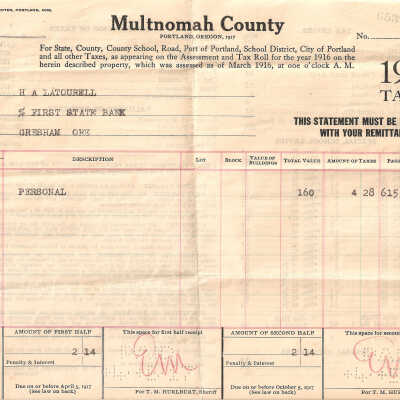 Multnomah County
PORTLAND, OREGON, 1917
No.
For State, County, County School, Road, Port of Portland, School District, City of Portland
and all other Taxes, as appearing on the Assessment and Tax Roll for the year 1916 on the
herein described property, which was assessed as of March 1916, at one o'clock A. M.
H A LATOURELL
% FIRST STATE BANK
GRESHAM ORE
THIS STATEMENT MUST BE
WITH YOUR
DESCRIPTION LOT BLOCK VALUE OF BUILDINGS TOTAL VALUE AMOUNT OF TAXES
PERSONAL 160 4 28 615
AMOUNT OF FIRST HALF This space for first half receipt AMOUNT OF SECOND HALF This space for
2 14 2 14
Penalty & Interest Penalty & Interest
Due on or before April 5, 1917 Due on or before October 5, 1917
(See law on back) For T. M. HURLBURT, Sheriff (See law on back) For T. M.